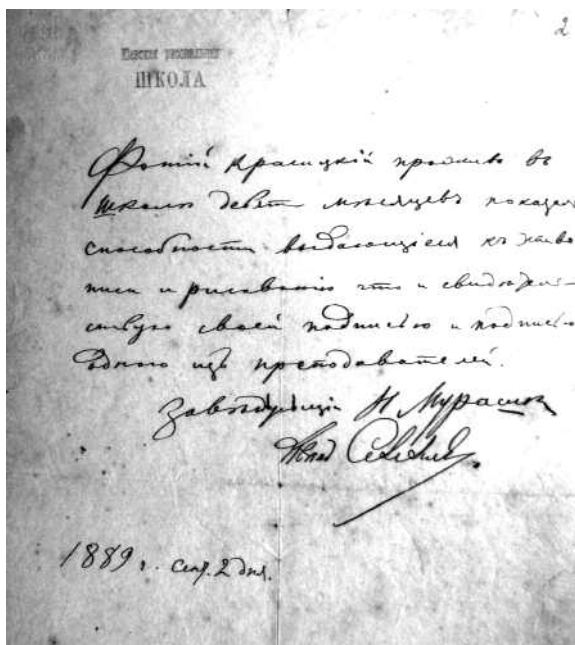 2
Кіевская рисовальная
ШКОЛА
Фотій Красицкій проживъ въ
школѣ девять мѣсяцевъ показалъ
способности выдающіеся къ живо
писи и рисованію что и свидѣтель-
ствую своей подписью и подписью
одного изъ преподавателей.
Завѣдующій Н Мурашко
1889 г. сент. 2 дня.